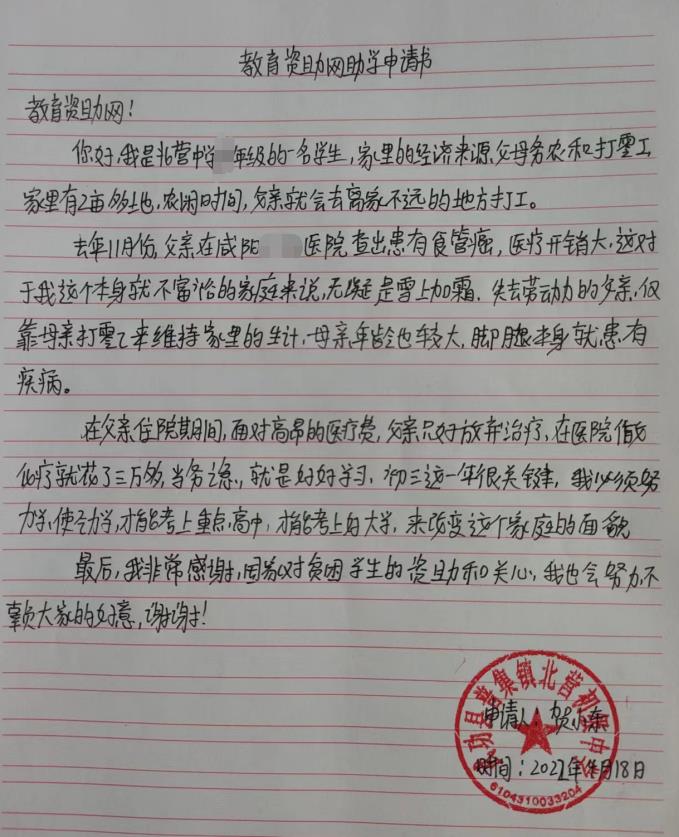 教育资助网助学申请书
教育资助网!
你好,我是北营中学 年级的一名学生,家里的经济来源父母务农和打零工
家里有2亩多地,农闲时间,父亲就会去离家不远的地方打工。
去年11月份,父亲在咸阳 医院查出患有食管癌,医疗开销大,这对
于我这个本身就不富治的家庭来说,无疑是雪上加霜.失去劳动力的父亲,仅
靠母亲打零工来维持家里的生计,母亲年龄也较大,脚腿本身就患有
疾病。
在父亲住院期间,面对高昂的医疗费,父亲只好放弃治疗,在医院做
化疗就花了三万多,当务之急,就是好好学习,初三这一年很关键,我必须努
力学,使劲学,才能考上重点高中,才能考上好大学,来改变这个家庭的面貌
最后,我非常感谢,国家对贫困学生的资助和关心,我也会努力,不
辜负大家的好意,谢谢!
申请人:贺小东
时间:2022年 月18日
武功县普集镇北营初级中学
6104310033204